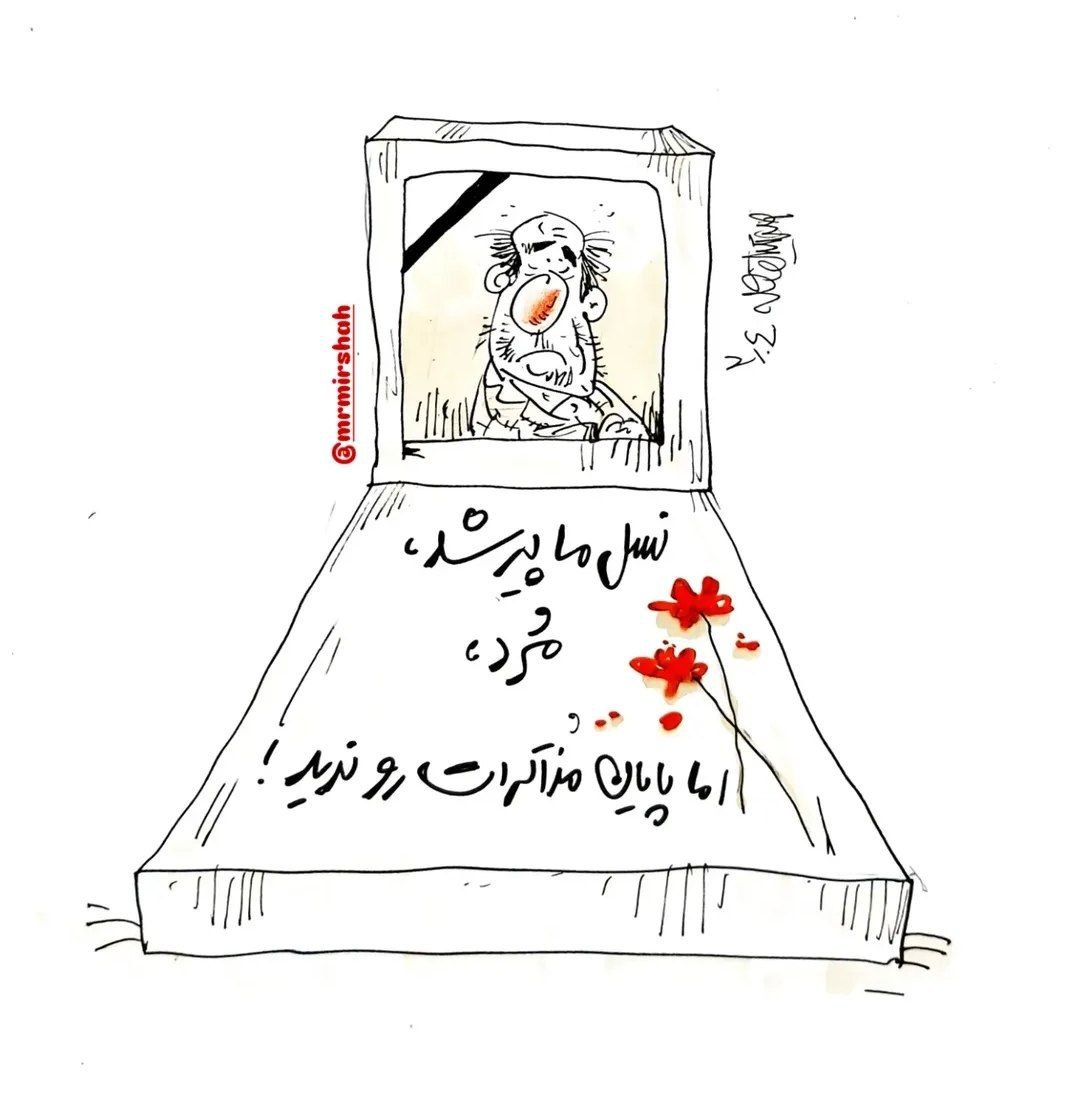 نسل ما پیر شد،
مُرد،
اما پایان مذاکرات رو ندید!
@mrmirshah